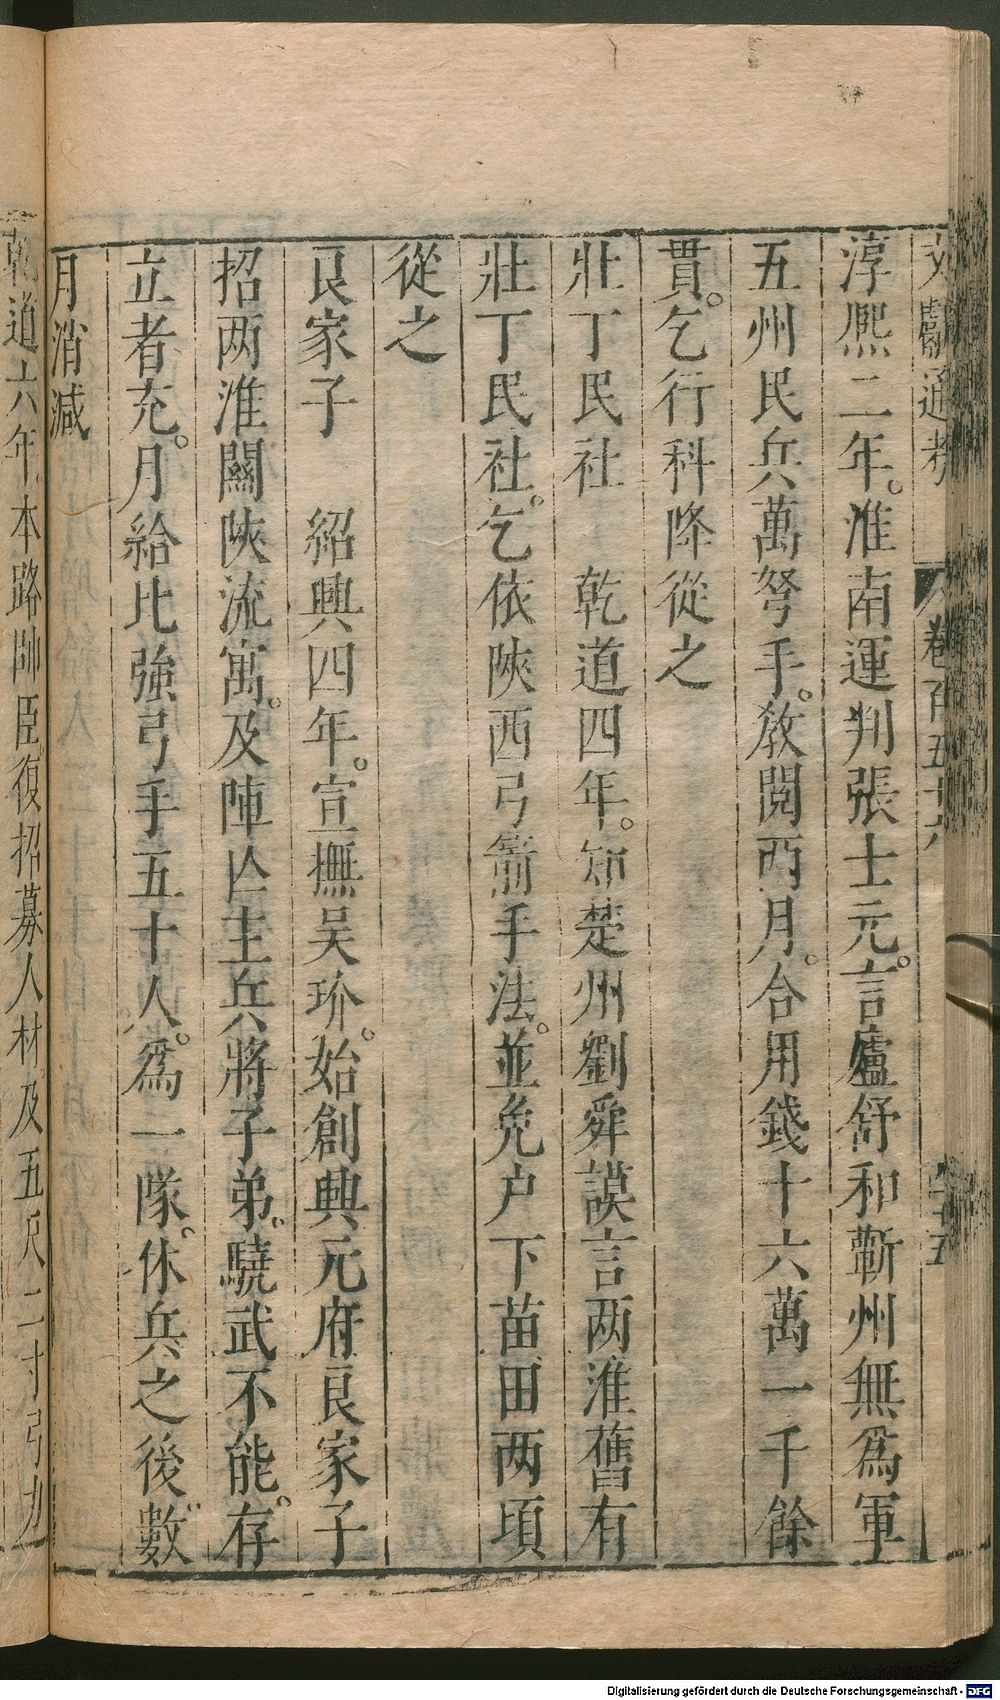 文獻通考 卷百五十六 二十五
淳熈二年。淮南運判張士元。言廬舒和蘄州無爲軍
五州民兵萬弩手。敎閲两月。合用錢十六萬一千餘
貫。乞行科降從之
壯丁民社 乾道四年。知楚州劉舜謨言两淮舊有
壯丁民社。乞依陝西弓箭手法。並免户下苗田两頃
從之
良家子 紹興四年。宣撫吴玠。始創興元府良家子
招两淮關陝流寓。及陣亡主兵將子弟。驍武不能。存
立者充。月給比強弓手五十人。爲一隊。休兵之後數
月消減
乾道六年。本路帥臣復招募人材及五尺二寸弓力
Digitalisierung gefördert durch die Deutsche Forschungsgemeinschaft - DFG